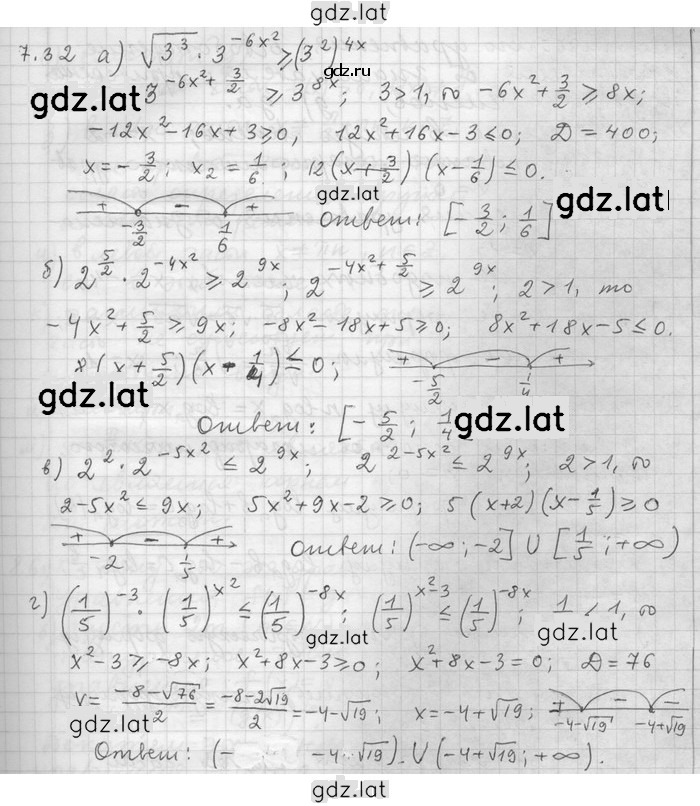 gdz.lat
7.32 а) √3³ · 3^(-6x²) ≥ (3²)^(4x)
gdz.ru
gdz.lat 3^(-6x²+3/2) ≥ 3^(8x); 3>1, то -6x²+3/2 ≥ 8x;
-12x²-16x+3≥0, 12x²+16x-3≤0; D=400;
x=-3/2; x₂=1/6; 12(x+3/2)(x-1/6)≤0.
gdz.lat
gdz.lat
+ - +
-3/2 1/6 Ответ: [-3/2; 1/6]
б) 2^(5/2) · 2^(-4x²) ≥ 2^(9x); 2^(-4x²+5/2) ≥ 2^(9x); 2>1, то
gdz.lat
-4x²+5/2 ≥ 9x; -8x²-18x+5≥0; 8x²+18x-5≤0.
8(x+5/2)(x-1/4)≤0; + - +
-5/2 1/4
gdz.lat
Ответ: [-5/2; 1/4 gdz.lat
в) 2² · 2^(-5x²) ≤ 2^(9x); 2^(2-5x²) ≤ 2^(9x); 2>1, то
2-5x² ≤ 9x; 5x²+9x-2≥0; 5(x+2)(x-1/5)≥0
+ - +
-2 1/5 Ответ: (-∞; -2] U [1/5; +∞)
gdz.lat
г) (1/5)^(-3) · (1/5)^(x²) ≤ (1/5)^(-8x); (1/5)^(x²-3) ≤ (1/5)^(-8x); 1 < 1, то
gdz.lat
gdz.lat
x²-3≥-8x; x²+8x-3≥0; x²+8x-3=0; D=76
x= (-8-√76)/2 = (-8-2√19)/2 = -4-√19; x=-4+√19; + - -
-4-√19 -4+√19
gdz.lat
Ответ: (- -4-√19).U(-4+√19; +∞).
gdz.lat